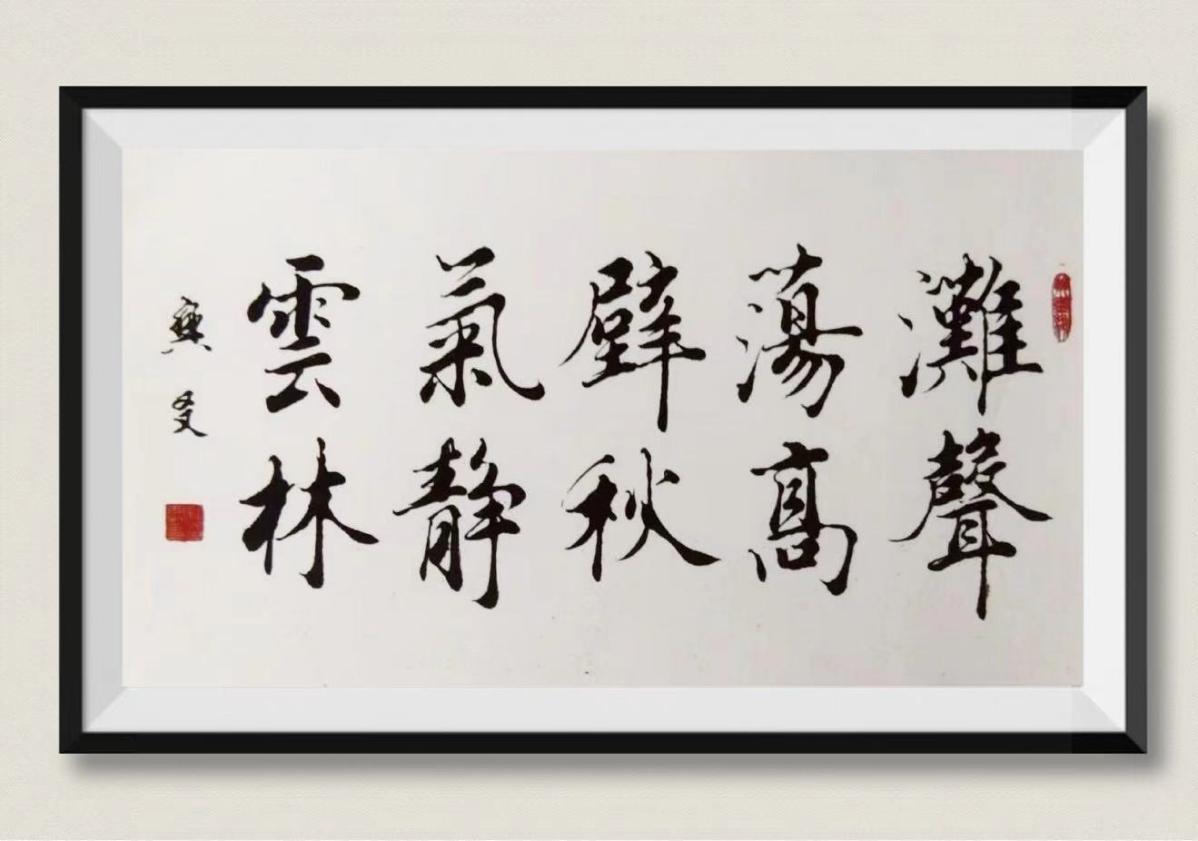 灘聲
蕩髙
壁秋
氣静
雲林